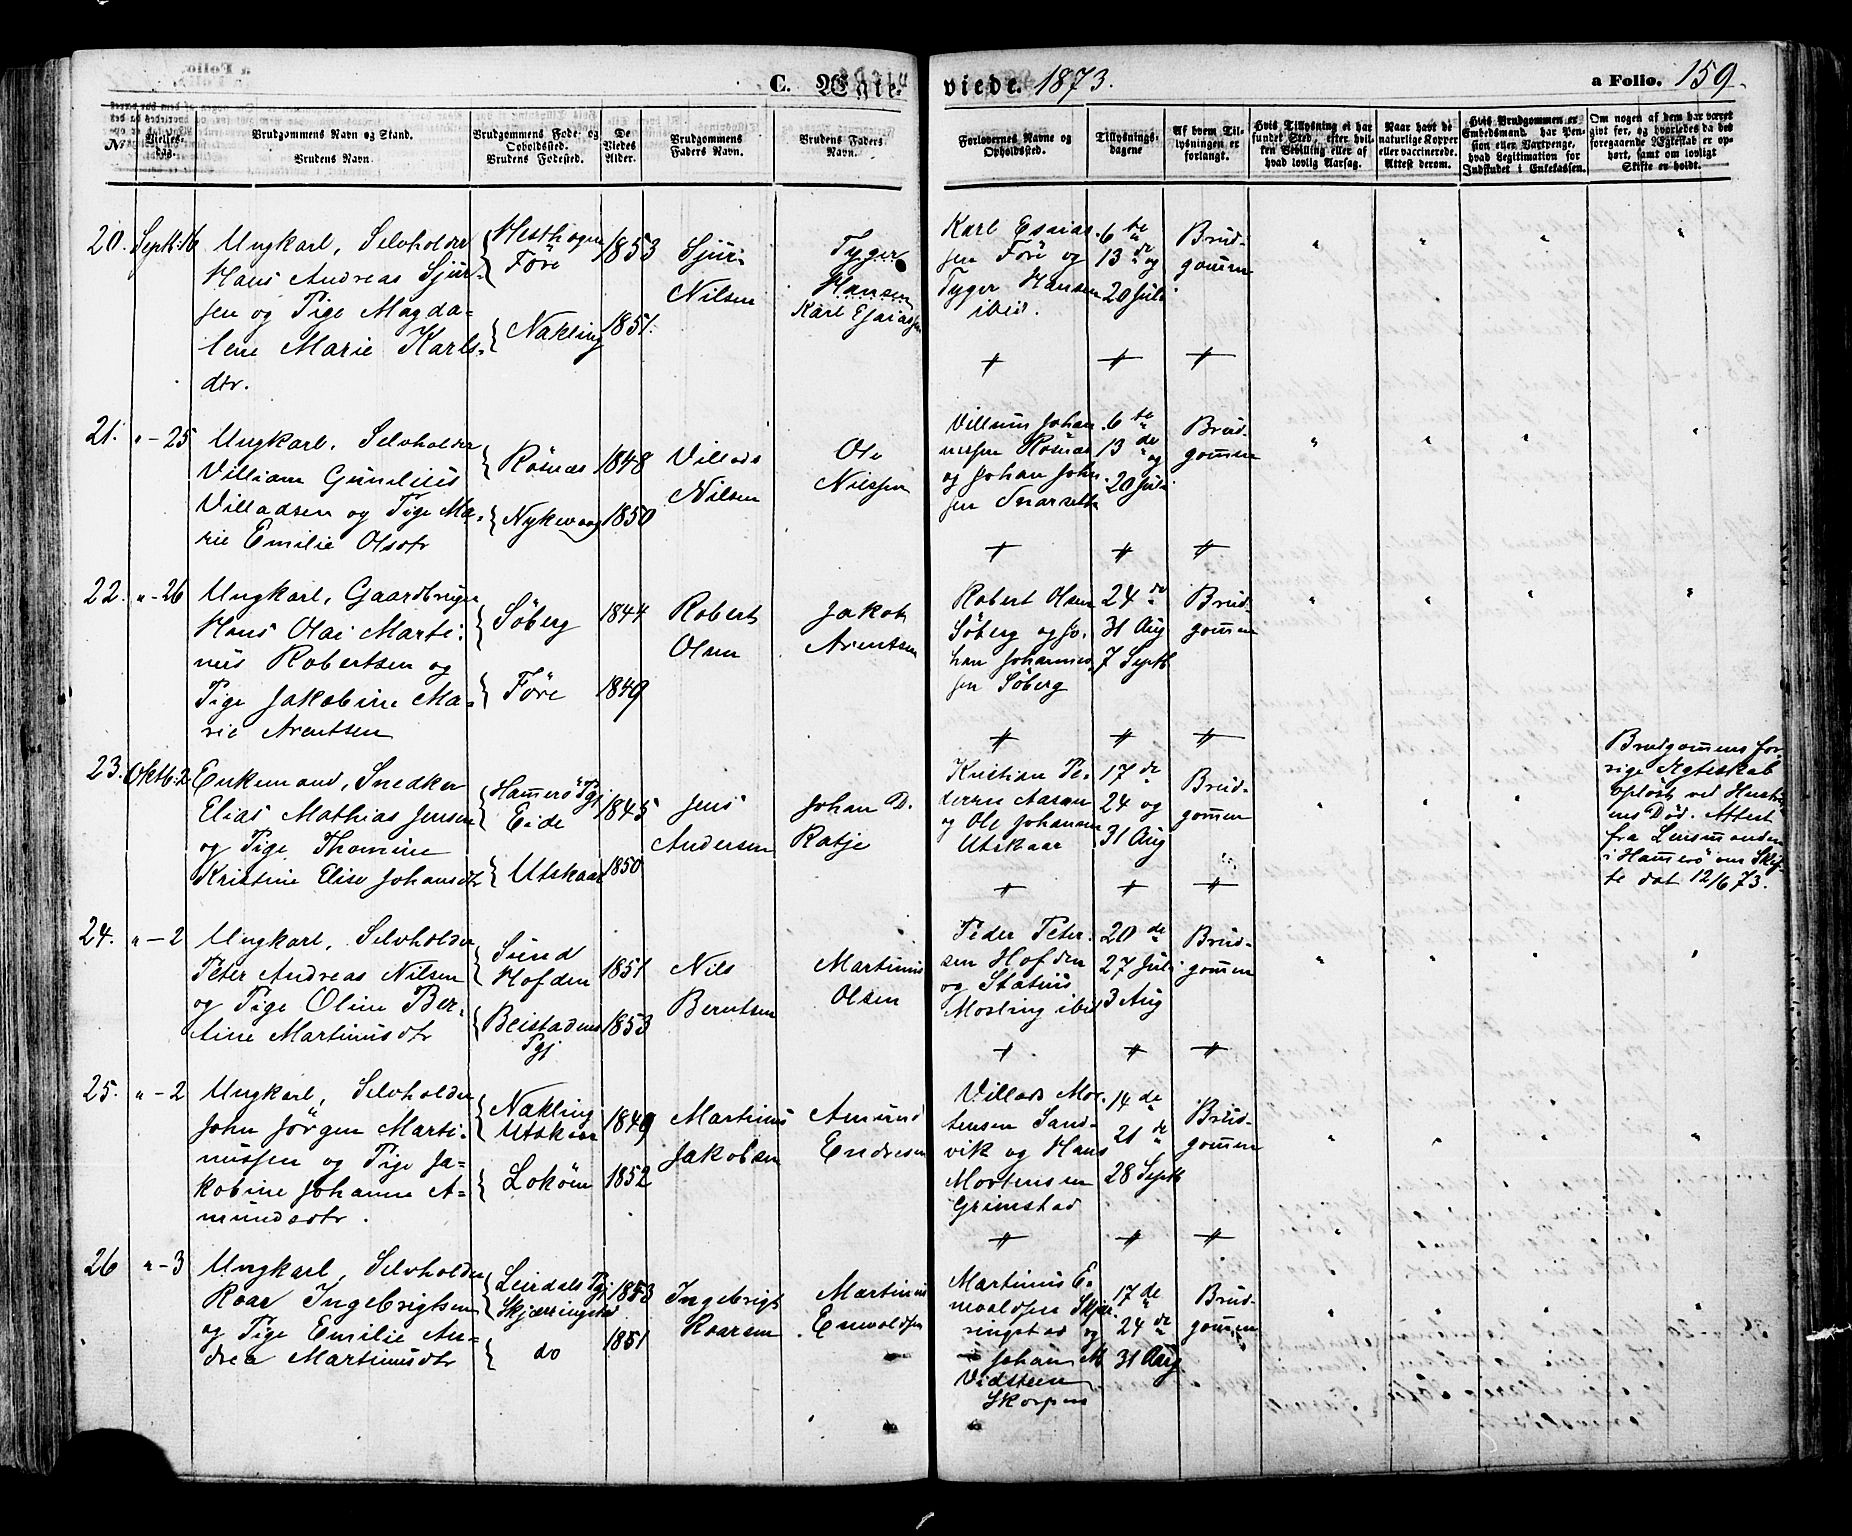 C. Ægte-
viede. 1873.
a Folio. 159.
No.
Vielses-
dag.
Brudgommens Navn og Stand.
Brudens Navn.
Brudgommens Føde- og
Opholdssted.
Brudens Fødested.
De
Viedes
Alder.
Brudgommens
Faders Navn.
Brudens Faders
Navn.
Forlovernes Navne og
Opholdssted.
Tillysnings-
dagene
Af hvem Til-
lysningen er
forlangt.
Hvis Tillysning ei har
fundet Sted, efter hvil-
ken Bevilling eller af
hvad lovlig Aarsag.
Naar havt de
naturlige Kopper
eller vaccinerede.
Attest derom.
Hvis Brudgommen er
Embedsmand, har Pen-
sion eller Vartpenge,
hvad Legitimation for
Indskudet i Enkekassen.
Om nogen af dem har været
gift før, og hvorledes da det
foregaaende Ægteskab er op-
hørt, samt om lovligt
Skifte er holdt.
20. Septb: 16
Ungkarl, Selvholder
Hans Andreas Sjur-
sen og Pige Magda-
lene Marie Karls-
dtr.
Hesthagen
Före
Nakling
1853
1851.
Sjur
Nilsen
Tyger
Hansen
Karl Esaiassen
Karl Esaias-
sen Före og
Tyger Hansen
ibid.
6te
13de og
20 Juli
Brud-
gommen
21. " - 25
Ungkarl, Selvholder
Villiam Gunelius
Villadsen og Pige Ma-
rie Emilie Olsdtr
Rösnæs
Nykevaag
1848
1850
Villads
Nilsen
Ole
Nilssen
Villum Johan
nessen Rösnæs
og Johan John
sen Snarsetth
6te
13de og
20 Juli
Brud-
gommen
22. " - 26
Ungkarl, Gaardbruger
Hans Olai Marti-
nus Robertsen og
Pige Jakobine Ma-
rie Arentsen
Söberg
Före
1844
1849
Robert
Olsen
Jakob
Arentsen
Robert Olsen
Söberg og Jo-
han Johannes
sen Söberg
24de
31 Aug
7 Septb
Brud-
gommen
23. Oktb: 2
Enkemand, Snedker
Elias Mathias Jensen
og Pige Thomine
Kristine Elise Johansdtr
Hamerö Pgj
Eide
Utskaar
1845
1850
Jens
Andersen
Johan D.
Ratje
Kristian Pe-
dersen Aasan
og Ole Johansen
Utskaar
17de
24 og
31 Aug
Brud-
gommen
Brudgommens for-
rige Ægteskab
oplöst ved Hustru-
ens Död. Attest
fra Lensmanden
i Hamerö om Skif-
te dat 12/6 73.
24. " - 2
Ungkarl, Selvholder
Peter Andreas Nilsen
og Pige Oline Ber-
tine Martinusdtr
Sund
Hofden
Beistadens
Pgj
1851
1853
Nils
Berntsen
Martinus
Olsen
Peder Peter-
sen Hofden
og Statius
Mosling ibid
20de
27 Juli
3 Aug
Brud-
gommen
25. " - 2
Ungkarl, Selvholder
John Jörgen Marti-
nussen og Pige Ja-
kobine Johanne A-
mundsdtr.
Nakling
Utskaar
Loköen
1849
1852
Martinus
Jakobsen
Amund
Endresen
Villads Mor-
tensen Sand-
vik og Hans
Mortensen
Grimstad
14de
21de
28 Septb
Brud-
gommen
26 " - 3
Ungkarl, Selvholder
Roar Ingebrigtsen
og Pige Emilie An-
drea Martinusdtr
Leirdals Pgj
Skjærringstad
do
1853
1851
Ingebrigt
Roarsen
Martinus
Enevoldsen
Martinus E-
nevoldsen Skjær-
ringstad og
Johan M
Vidsteen
Skorpen
17de
24de
31 Aug
Brud-
gommen